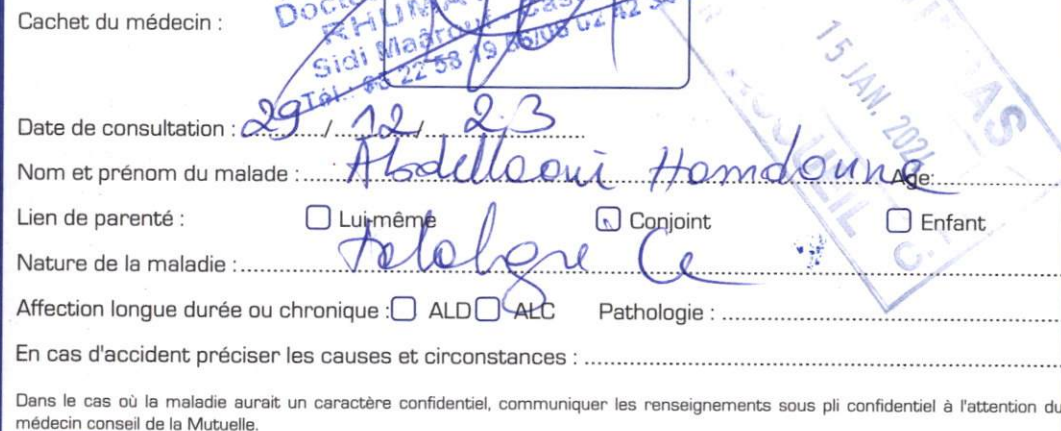 Cachet du médecin :
Sidi Maârouf
15 JAN. 2024
Date de consultation : 29 / 12 / 23
Nom et prénom du malade : Abdellaoui Hamdouna Age:
Lien de parenté : Lui-même Conjoint Enfant
Nature de la maladie :
Affection longue durée ou chronique : ALD ALC Pathologie :
En cas d'accident préciser les causes et circonstances :
Dans le cas où la maladie aurait un caractère confidentiel, communiquer les renseignements sous pli confidentiel à l'attention du
médecin conseil de la Mutuelle.